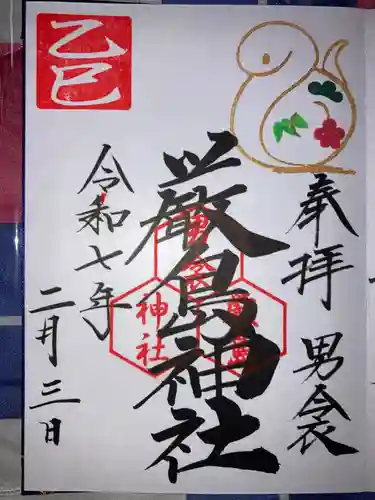 奉拝
男衾
嚴島神社
令和七年
二月三日
乙巳
男衾
嚴島
神社